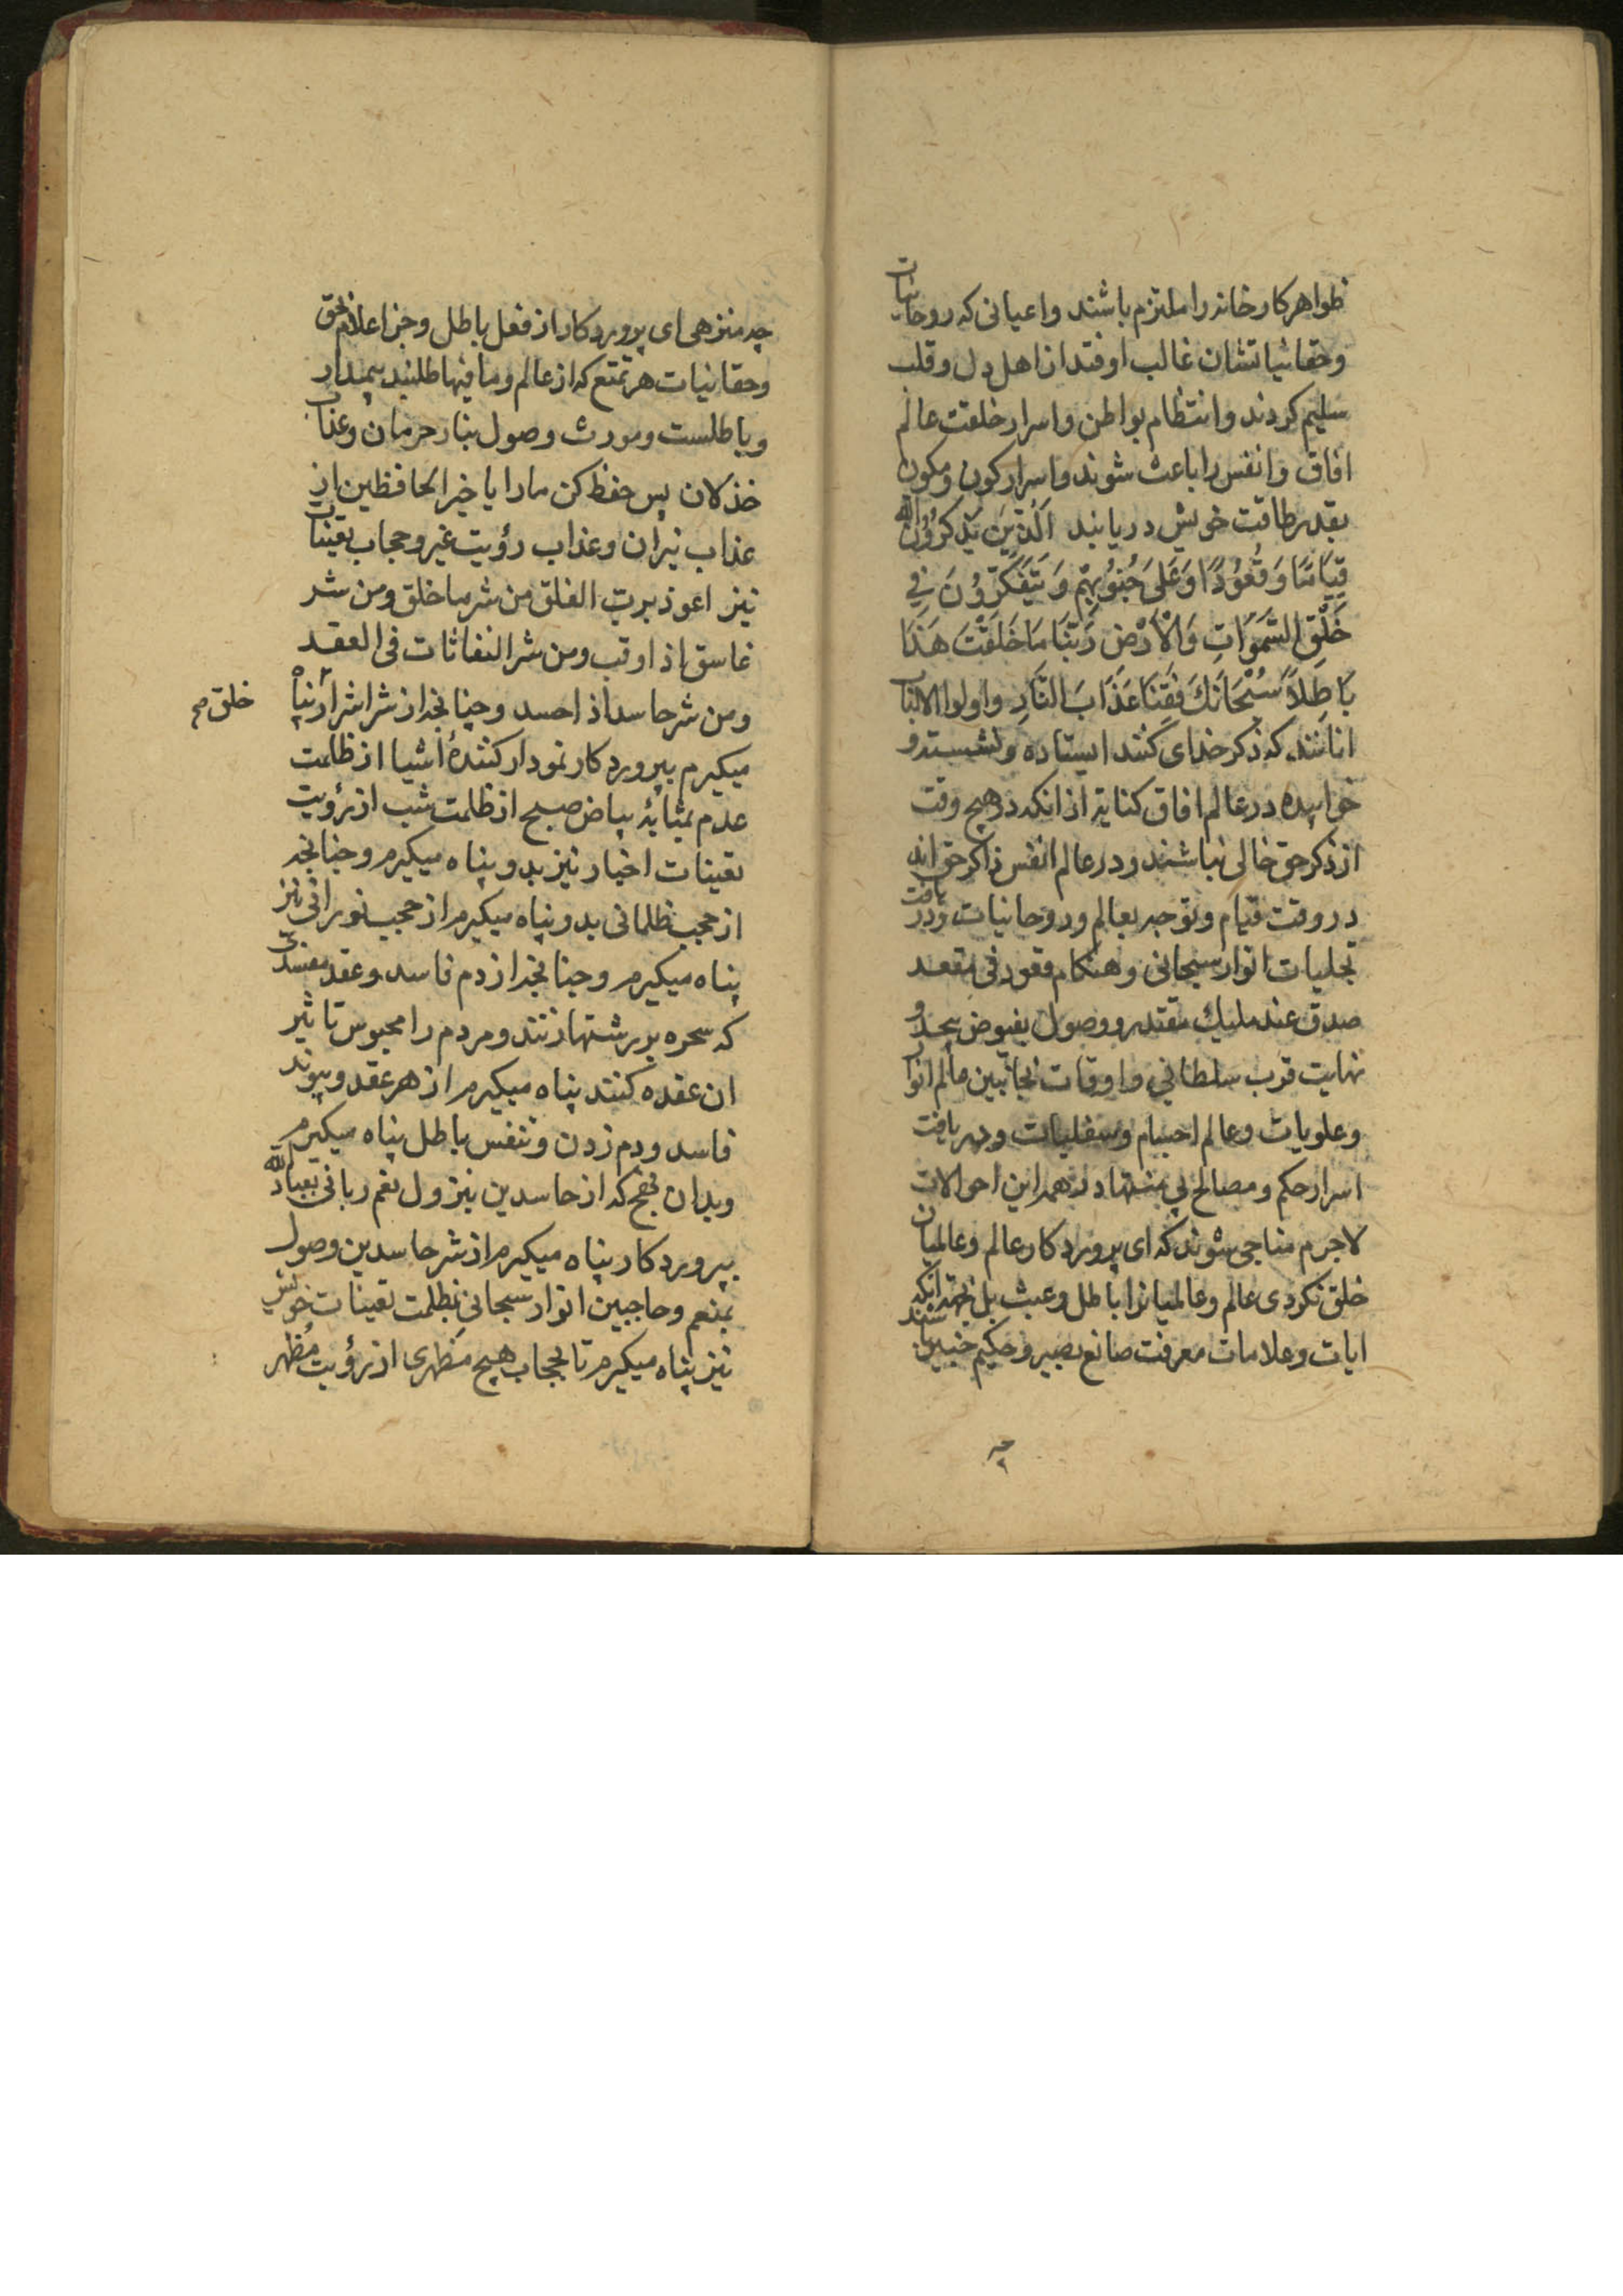 ظواهر کارخانه را ملتزم باشند و اعیانی که روحانیات
و حقانیاتشان غالب اوفتد از اهل دل و قلب
سلیم کردند و انتظام بواطن و اسرار خلقت عالم
افاق و انفس را باعث شوند و اسرار کون و مکون
بقدر طاقت خویش دریابند اَلَّذِینَ یَذْکُرُونَ اللّه
قِیَامًا وَ قُعُوْدًا وَ عَلَی جُنُوْبِهِمْ وَ یَتَفَکَّرُوْنَ فِی
خَلْقِ السَّمَوَاتِ وَالْاَرْضِ رَبَّنَا مَا خَلَقْتَ هَذَا
بَاطِلاً سُبْحَانَكَ فَقِنَا عَذَابَ النَّارِ و اولوا الالباب
انانند که ذکر خدای کنند ایستاده و نشسته و
خوابیده در عالم افاق کنایة از انکه در هیچ وقت
از ذکر حق خالی نباشند و در عالم انفس ذاکر حق اند
در وقت قیام و توجه بعالم و روحانیات و دریافت
تجلیات انوار سبحانی و هنکام قعود فی مقعد
صدق عند ملیك مقتدر و وصول بفیوض بیحد و
نهایت قرب سلطانی و اوقات بجانبین عالم انوار
و علویات و عالم اجسام و سفلیات و دریافت
اسرار حکم و مصالح بی منتها در همه این احوالات
لاجرم مناجی شوند که ای پروردکار عالم و عالمیان
خلق نکردی عالم و عالمیانرا باطل و عبث بل بجهة انکه
ایات و علامات معرفت صانع بصیر و حکیم خبیر باشند
چه
چه منزهی ای پروردکار از فعل باطل و جز اعلام حق
و حقانیات هر تمتع که از عالم و ما فیها طلبند بیمدار
و باطلست و مورث وصول بنار حرمان و عذاب
خذلان پس حفظ کن ما را یا خیر الحافظین از
عذاب نیران و عذاب رؤیت غیر و حجاب تعینات
نیز اعوذ برب الفلق من شر ما خلق و من شر
غاسق اذا وقب و من شر النفاثات فی العقد
و من شر حاسد اذا حسد و چنانچه از شر اشرار پناه
خلق صح
میکیرم بپروردکار نمودار کنندۀ اشیا از ظلمت
عدم بمثابۀ بیاض صبح از ظلمت شب از رؤیت
تعینات اخیار نیز بدو پناه میکیرم و چنانچه
از حجب ظلمانی بدو پناه میکیرم از حجب نورانی نیز
پناه میکیرم و چنانچه از دم فاسد و عقد مفسدی
که سحره بر رشتها زنند و مردم را محبوس تاثیر
ان عقده کنند پناه میکیرم از هر عقد و پیوند
فاسد و دم زدن و تنفس باطل پناه میکیرم
و بدان نهج که از حاسدین بنزول نعم ربانی بعباد اللّه
بپروردکار پناه میکیرم از شر حاسدین وصول
بمنعم و حاجبین انوار سبحانی بظلمت تعینات خویش
نیز پناه میکیرم تا بحجاب هیچ مَظهری از رؤیت مُظهر